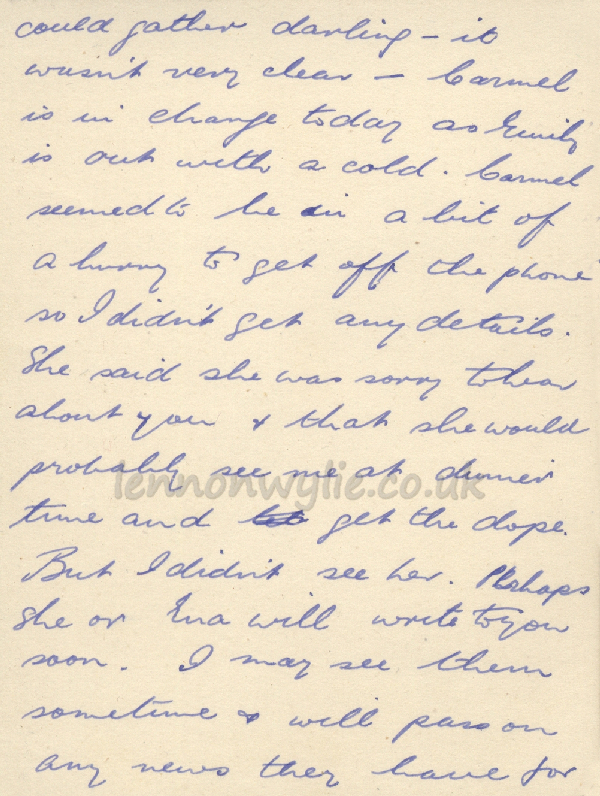 could gather darling - it
wasn't very clear - Carmel
is in charge today as Emily
is out with a cold. Carmel
seemed to be in a bit of
a hurry to get off the phone
so I didn't get any details.
She said she was sorry to hear
about you & that she would
probably see me at dinner
lennonwylie.co.uk
time and get the dope.
But I didn't see her. Perhaps
she or Ena will write to you
soon. I may see them
sometime & will pass on
any news they have for